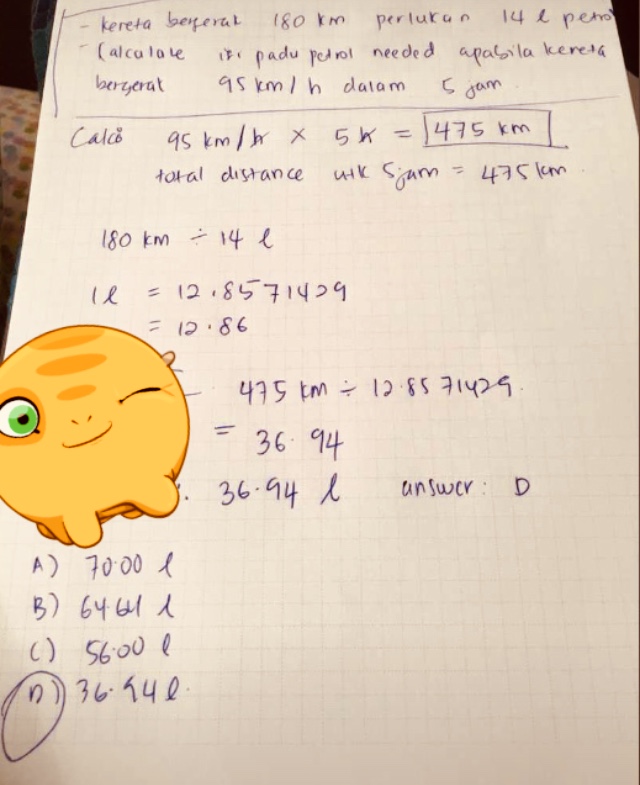 - kereta bergerak 180 km perlukan 14 l petrol
- Calculate isi padu petrol needed apabila kereta
bergerak 95 km/h dalam 5 jam.
Calc: 95 km/h × 5h = 475 km
total distance utk 5 jam = 475 km.
180 km ÷ 14 l
1 l = 12.8571429
= 12.86
475 km ÷ 12.8571429.
= 36.94
36.94 l answer: D
A) 70.00 l
B) 64.64 l
C) 56.00 l
D) 36.94 l.